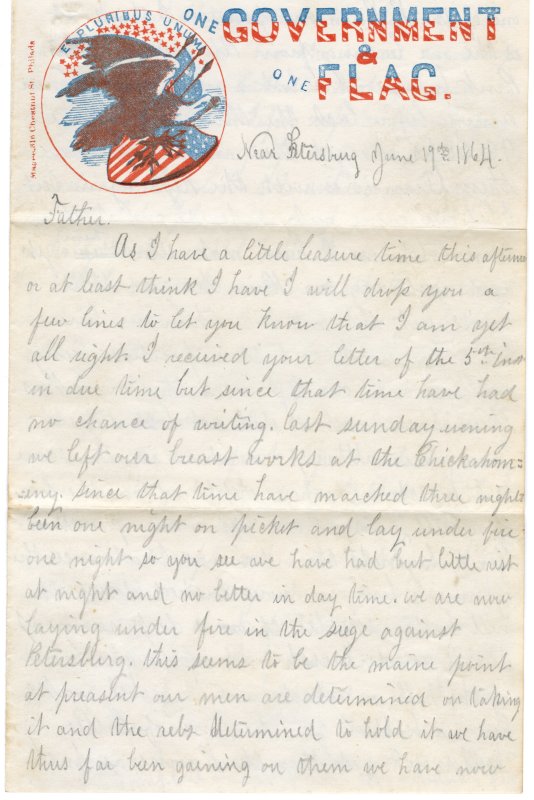 E PLURIBUS UNUM
ONE GOVERNMENT
&
ONE FLAG.
Magee, 316 Chestnut St. Philada
Near Petersburg June 19th 1864.
Father.
As I have a little leasure time this afternoon
or at least think I have I will drop you a
few lines to let you know that I am yet
all right. I received your letter of the 5th inst
in due time but since that time have had
no chance of writing. last sunday evening
we left our breast works at the Chickahom=
=iny. since that time have marched three nights
been one night on picket and lay under fire
one night so you see we have had but little rest
at night and no better in day time. we are now
laying under fire in the siege against
Petersburg. this seems to be the maine point
at preasent our men are determined on taking
it and the rebs determined to hold it we have
thus far been gaining on them we have now